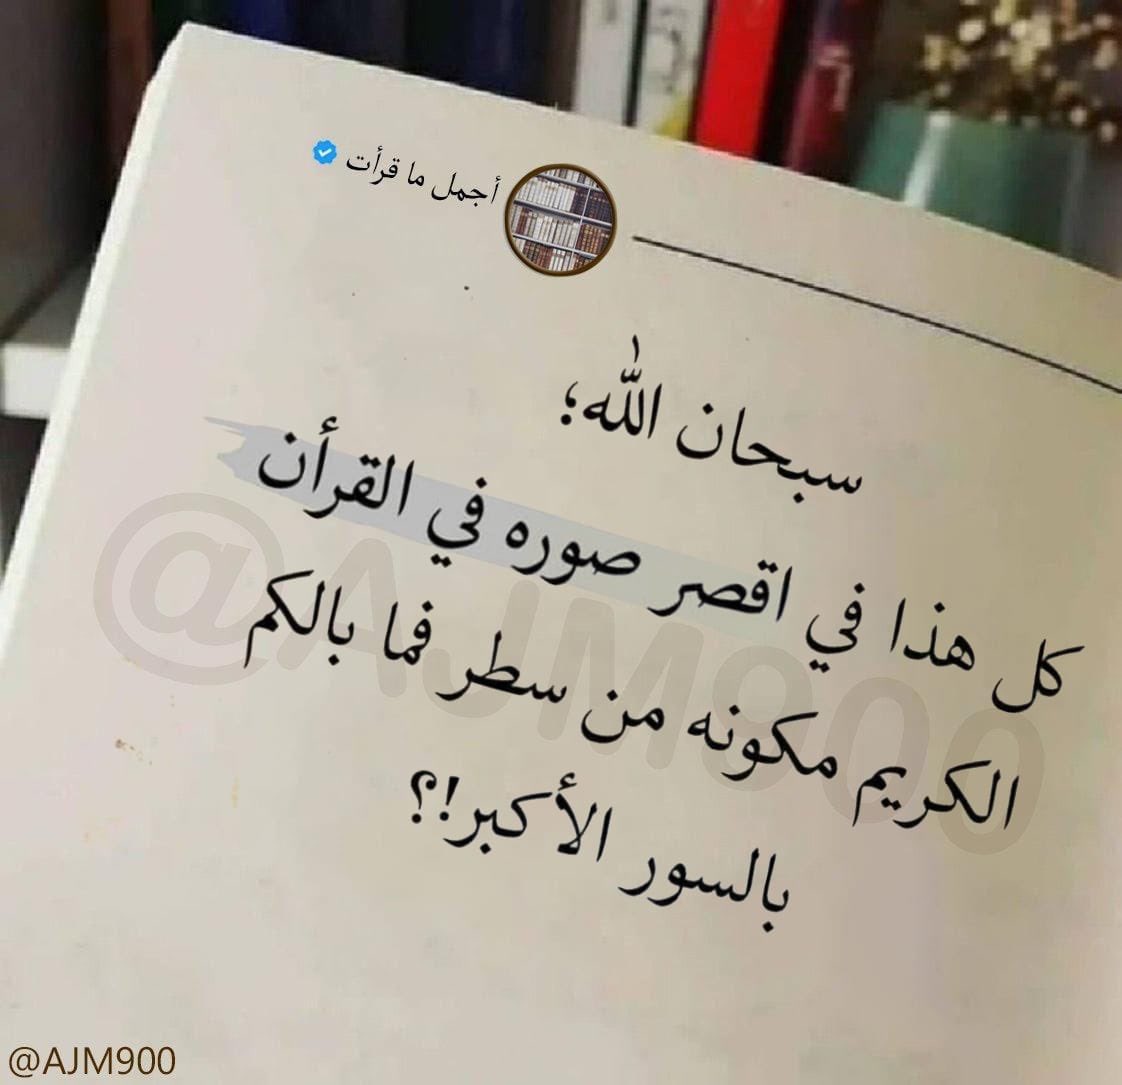 أجمل ما قرأت
سبحان الله؛
كل هذا في اقصر صوره في القرأن
الكريم مكونه من سطر فما بالكم
بالسور الأكبر!؟
@AJM900
@AJM900